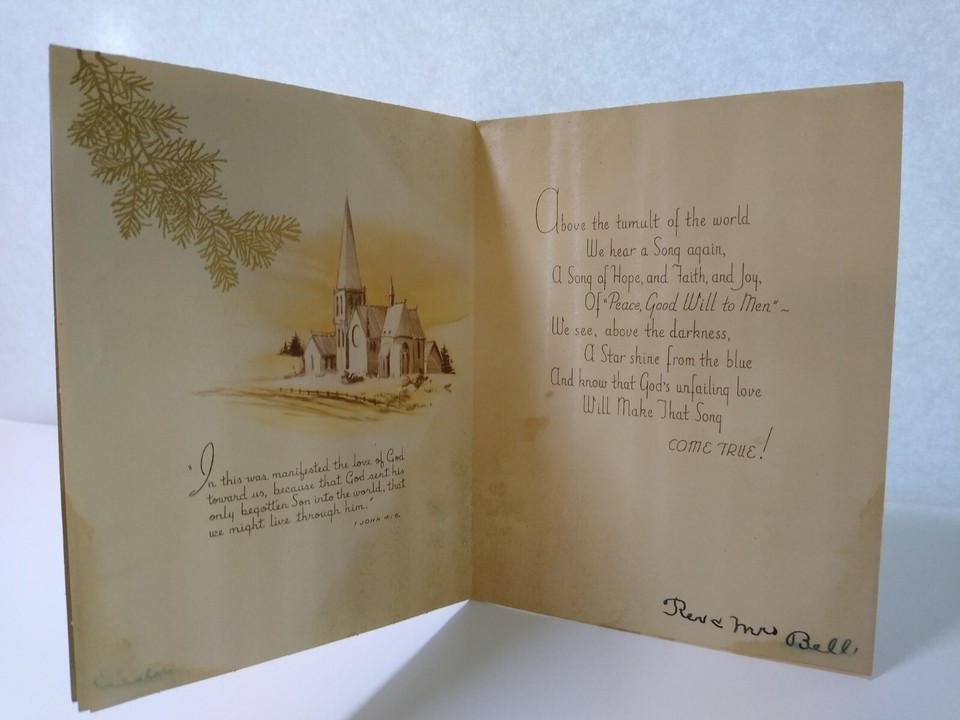 "In this was manifested the love of God
toward us, because that God sent his
only begotten Son into the world, that
we might live through him."
I JOHN 4:9.
Above the tumult of the world
We hear a Song again,
A Song of Hope, and Faith, and Joy,
Of "Peace, Good Will to Men" ~
We see, above the darkness,
A Star shine from the blue
And know that God's unfailing love
Will Make That Song
COME TRUE!
Rev & Mrs Bell,